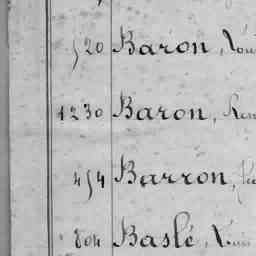 520 Baron,
1230 Baron,
454 Barron,
804 Baslé,